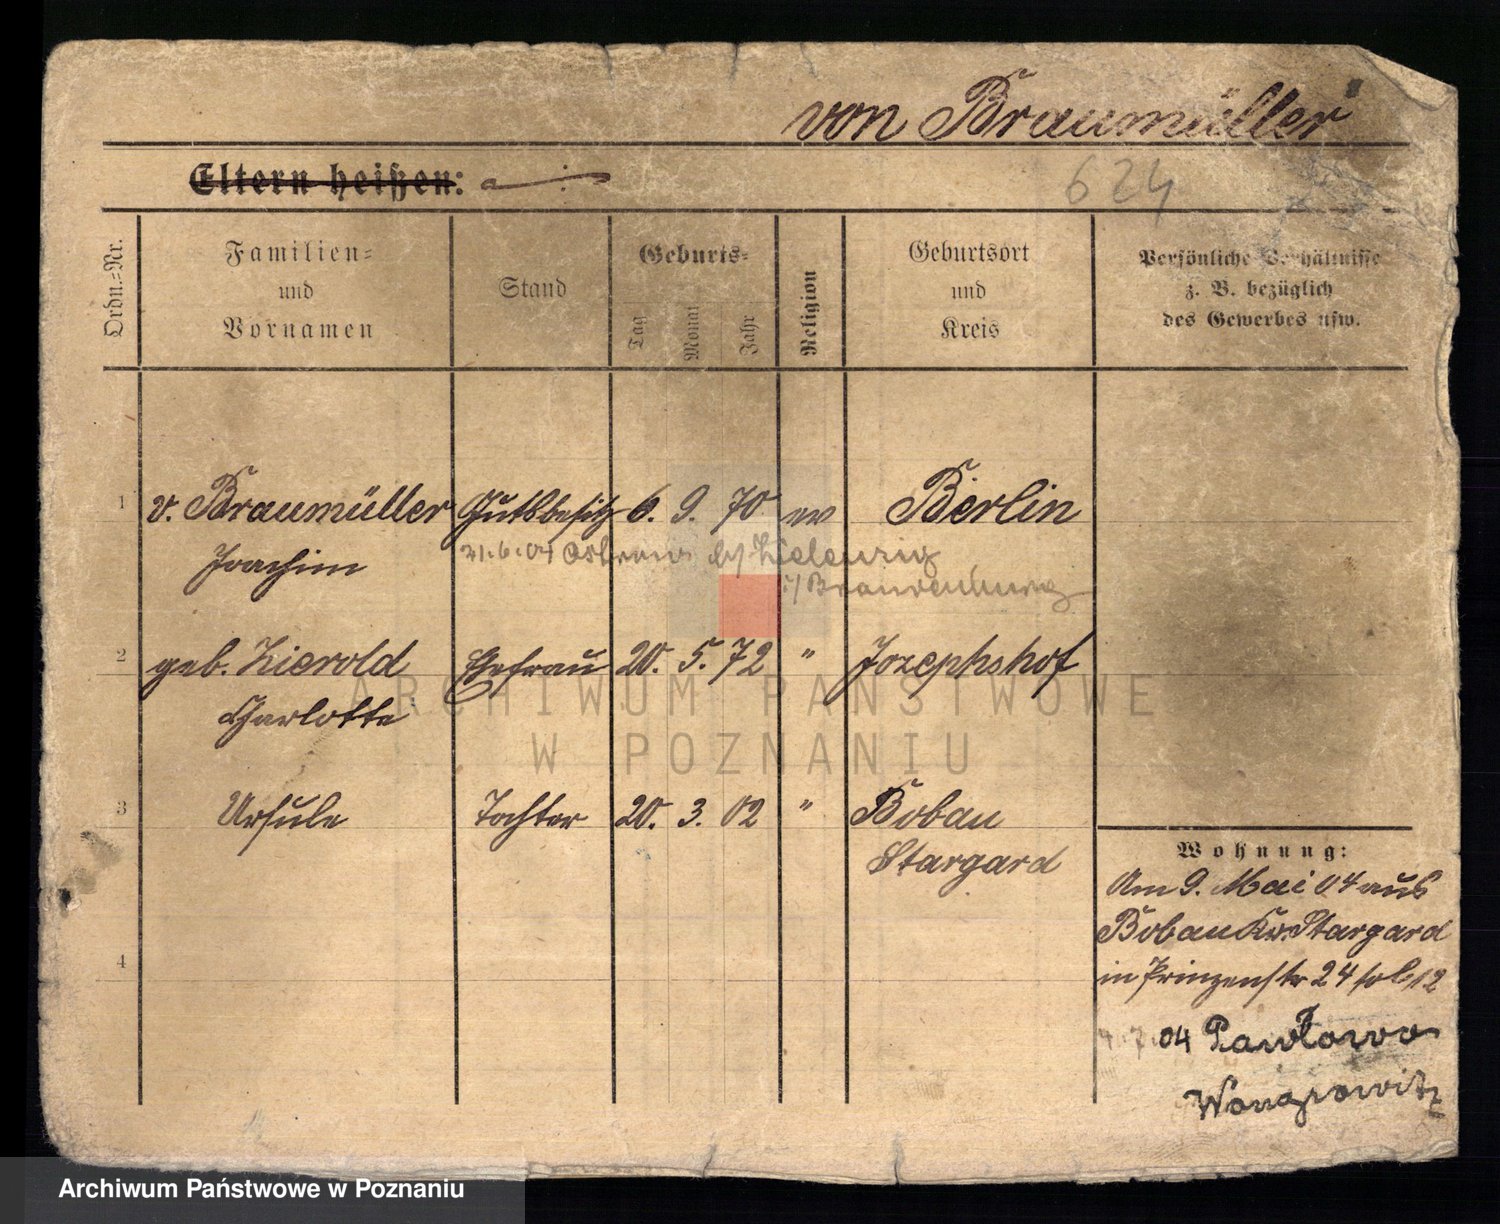 von Braumüller
Eltern heißen:
624
Ordn.-Nr.
Familien-
und
Vornamen
Stand
Geburts-
Tag
Monat
Jahr
Religion
Geburtsort
und
Kreis
Persönliche Verhältnisse
z. B. bezüglich
des Gewerbes usw.
1 v. Braumüller Gutsbesitz 6. 9. 70 ev Berlin
Joachim
21.6.04 by Zielenzig
i/Brandenburg
2 geb. Zierold Ehefrau 20. 5. 72 " Jozephshof
Charlotte
3 Ursule Tochter 20. 3. 02 " Bobau
Stargard
4
Wohnung:
Am 9. Mai 04 aus
Bobau Kr. Stargard
in Prinzenstr 24
7.04 Pawlowo
Wongrowitz
ARCHIWUM PAŃSTWOWE
W POZNANIU
Archiwum Państwowe w Poznaniu